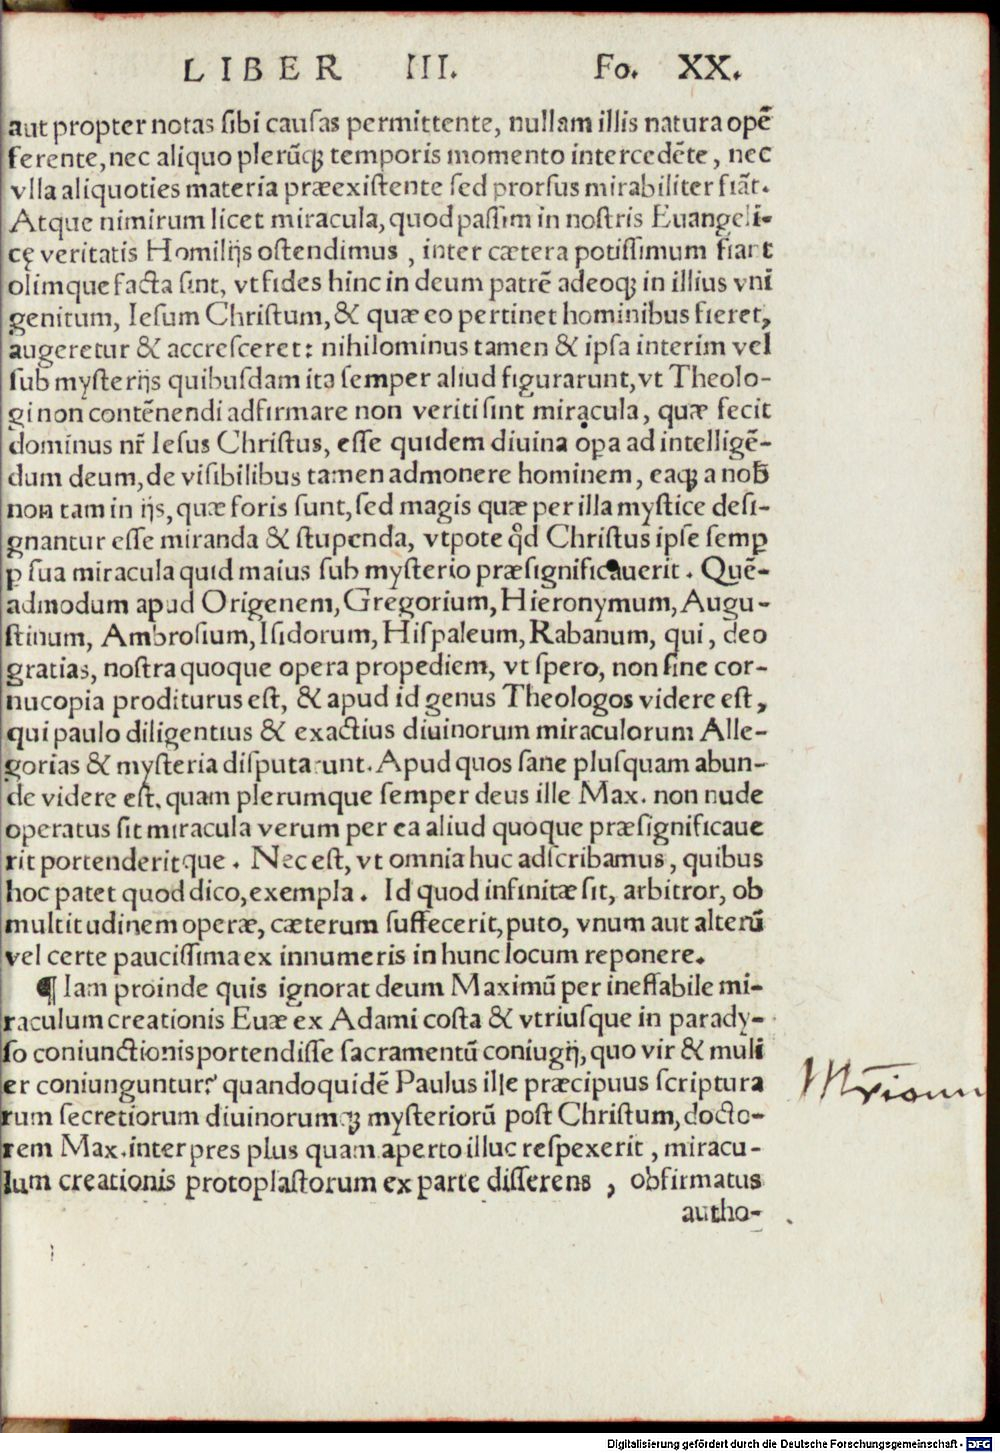 LIBER III. Fo. XX.
aut propter notas ſibi cauſas permittente, nullam illis natura opē
ferente, nec aliquo plerūq; temporis momento intercedēte, nec
vlla aliquoties materia præexiſtente ſed prorſus mirabiliter fiāt.
Atque nimirum licet miracula, quod paſſim in noſtris Euangeli-
cę veritatis Homilijs oſtendimus, inter cætera potiſſimum fiant
olimque facta ſint, vt fides hinc in deum patrē adeoq; in illius vni
genitum, Ieſum Chriſtum, & quæ eo pertinet hominibus fieret,
augeretur & accreſceret: nihilominus tamen & ipſa interim vel
ſub myſterijs quibuſdam ita ſemper aliud figurarunt, vt Theolo-
gi non contēnendi adfirmare non veriti ſint miracula, quæ fecit
dominus nr̄ Ieſus Chriſtus, eſſe quidem diuina oꝑa ad intelligē-
dum deum, de viſibilibus tamen admonere hominem, eaq; a nob̄
non tam in ijs, quæ foris ſunt, ſed magis quæ per illa myſtice deſi-
gnantur eſſe miranda & ſtupenda, vtpote qd̄ Chriſtus ipſe ſemꝑ
ꝑ ſua miracula quid maius ſub myſterio præſignificauerit. Quē-
admodum apud Origenem, Gregorium, Hieronymum, Augu-
ſtinum, Ambroſium, Iſidorum, Hiſpaleum, Rabanum, qui, deo
gratias, noſtra quoque opera propediem, vt ſpero, non ſine cor-
nucopia proditurus eſt, & apud id genus Theologos videre eſt,
qui paulo diligentius & exactius diuinorum miraculorum Alle-
gorias & myſteria diſputarunt. Apud quos ſane pluſquam abun-
de videre eſt, quam plerumque ſemper deus ille Max. non nude
operatus ſit miracula verum per ea aliud quoque præſignificaue
rit portenderitque. Nec eſt, vt omnia huc adſcribamus, quibus
hoc patet quod dico, exempla. Id quod infinitæ ſit, arbitror, ob
multitudinem operæ, cæterum ſuffecerit, puto, vnum aut alterū
vel certe pauciſſima ex innumeris in hunc locum reponere.
¶ Iam proinde quis ignorat deum Maximū per ineffabile mi-
raculum creationis Euæ ex Adami coſta & vtriuſque in parady-
ſo coniunctionis portendiſſe ſacramentū coniugij, quo vir & muli
er coniunguntur? quandoquidē Paulus ille præcipuus ſcriptura
rum ſecretiorum diuinorumq; myſteriorū poſt Chriſtum, docto-
rem Max. interpres plus quam aperto illuc reſpexerit, miracu-
lum creationis protoplaſtorum ex parte diſſerens, obfirmatus
autho-
Digitalisierung gefördert durch die Deutsche Forschungsgemeinschaft - DFG